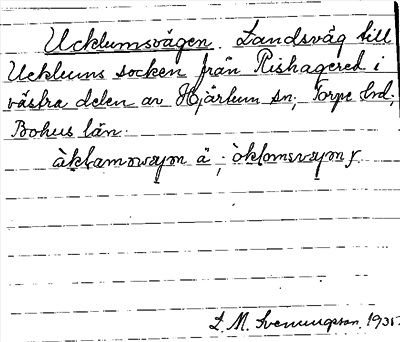 Ucklumsvägen. Landsväg till
Ucklums socken från Rishagered i
västra delen av Hjärtum sn; Torpe hd;
Bohus län.
L. M. Svenungsson. 1935.